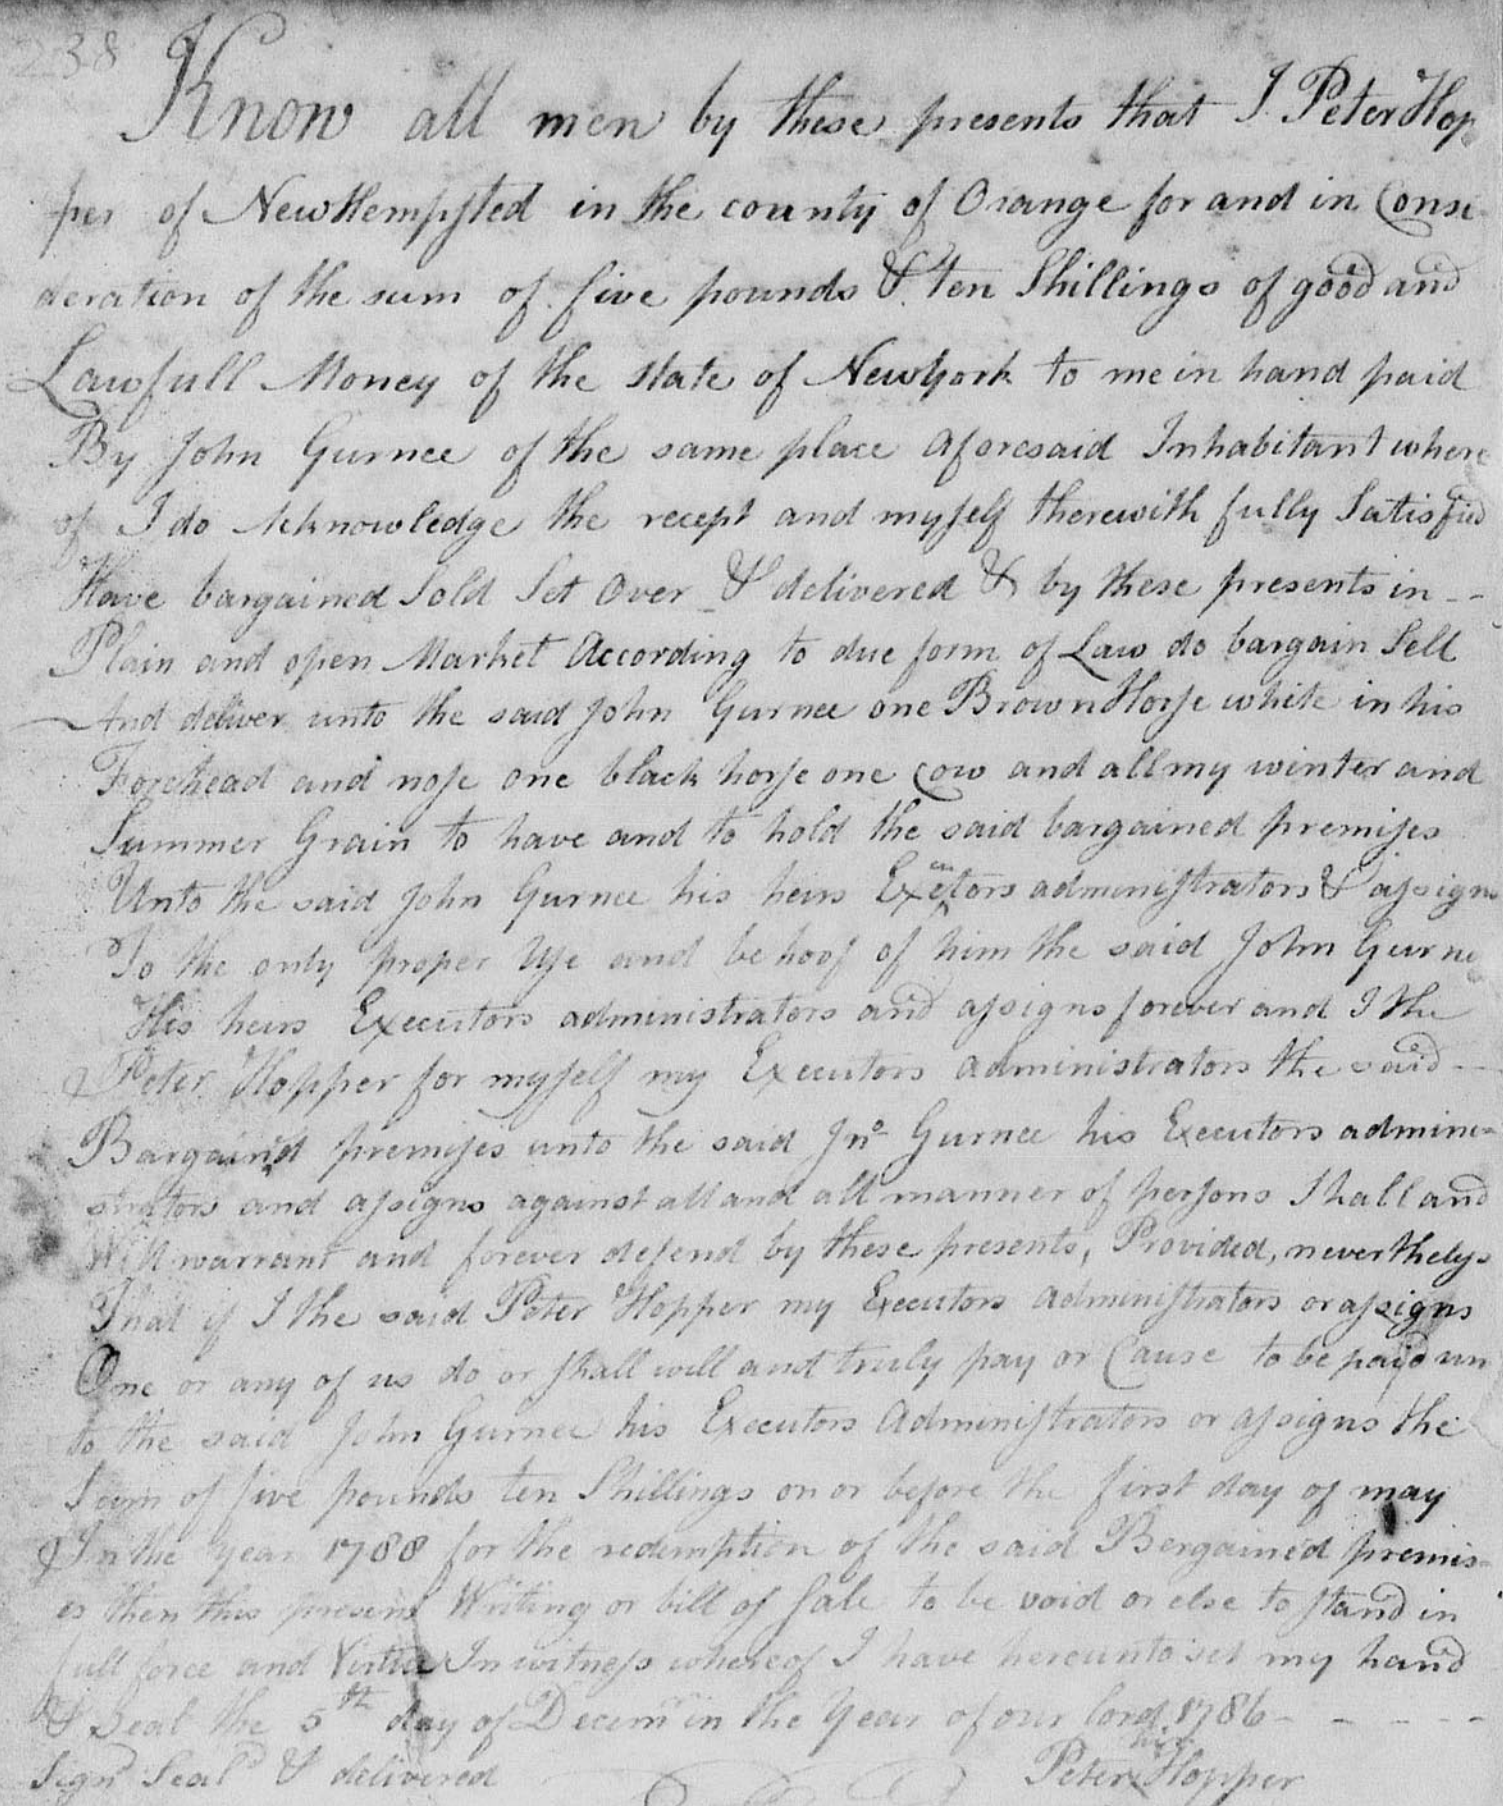 238
Know all men by these presents that I Peter Hop
per of NewHempsted in the county of Orange for and in Consi
deration of the sum of five pounds & ten Shillings of good and
Lawfull Money of the state of Newyork to me in hand paid
By John Gurnee of the same place aforesaid Inhabitant where
of I do Acknowledge the recept and myself therewith fully Satisfied
Have bargained Sold Set Over & delivered & by these presents in - -
Plain and open Market According to due form of Law do bargain Sell
And deliver unto the said John Gurnee one Brown Horse white in his
Forehead and nose one black horse one Cow and all my winter and
Summer Grain to have and to hold the said bargained premises
Unto the said John Gurnee his heirs Executors administrators & assigns
To the only proper Use and behoof of him the said John Gurne
His heirs Executors administrators and assigns forever and I the
Peter Hopper for myself my Executors administrators the said -
Bargain'd premises unto the said Jno Gurnee his Executors admini=
strators and assigns against all and all manner of persons Shall and
Will warrant and forever defend by these presents, Provided, neverthelys
That if I the said Peter Hopper my Executors Administrators or assigns
One or any of us do or shall will and truly pay or Cause to be payd un
to the said John Gurnee his Executors Administrators or assigns the
Sum of five pounds ten Shillings on or before the first day of may
In the Year 1788 for the redemption of the said Bergained premis=
es then this present Writing or bill of Sale to be void or else to stand in
full force and Virtue In witness whereof I have hereunto set my hand
& Seal the 5th day of Decemr in the Year of our lord 1786 - - - - -
Sign'd Seal'd & delivered
his
Peter Hopper